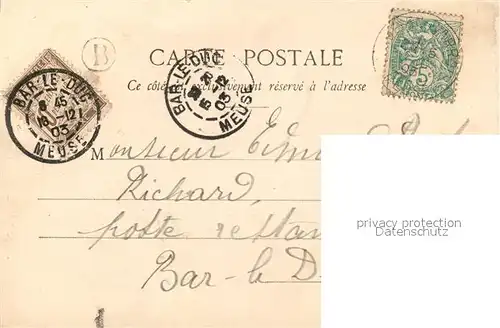 B
CARTE POSTALE
Ce côté exclusivement réservé à l'adresse
BAR-LE-DUC
45
16-12
03
MEUSE
BAR-LE-DUC
12
03
MEUSE
5
Monsieur
Richard,
poste
Bar-le D
privacy protection
Datenschutz